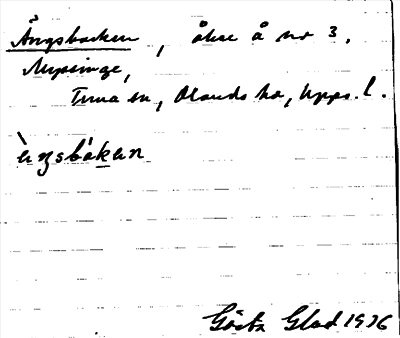 Ängsbacken, åker å nr 3,
Mysinge,
Tuna sn, Olands hd, Upps. l.
èŋsbáken
Gösta Glad 1936